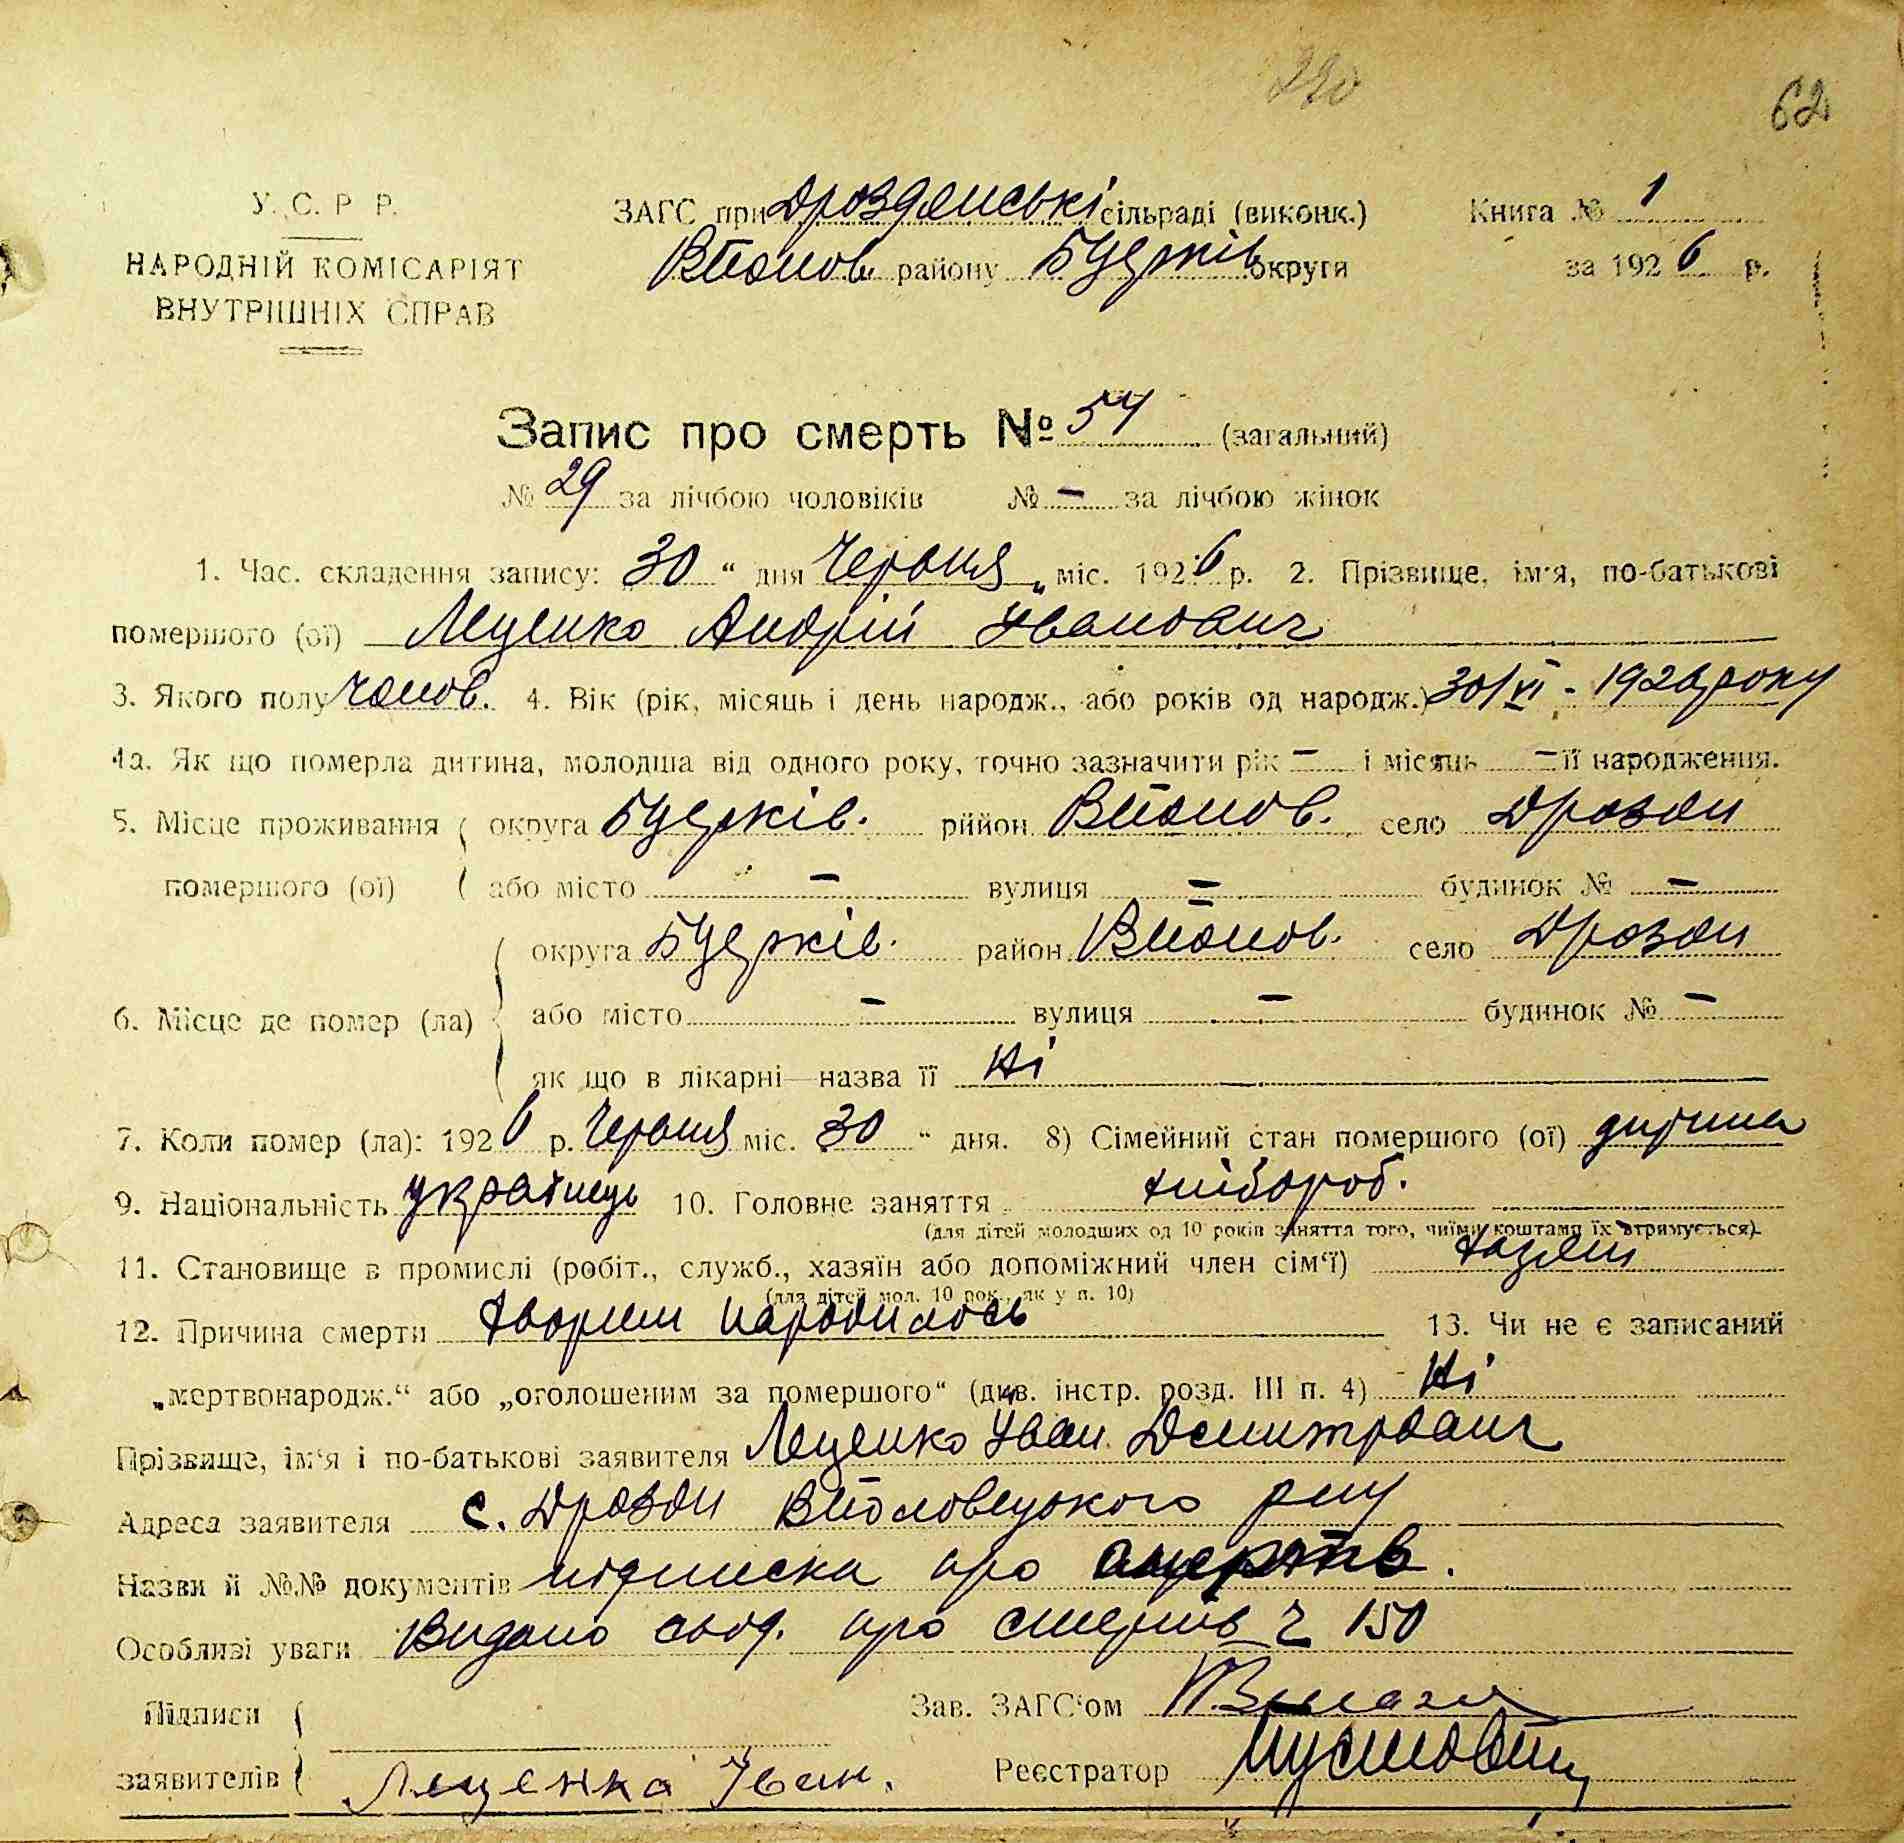 220
62
У. С. Р. Р.
НАРОДНІЙ КОМІСАРІЯТ
ВНУТРІШНІХ СПРАВ
ЗАГС при Дроздянські сільраді (виконк.)
району Бцерків округи
Книга № 1
за 1926 р.
Запис про смерть № 54 (загальний)
№ 29 за лічбою чоловіків № – за лічбою жінок
1. Час. складення запису: „30“ дня „Червня„ міс. 1926 р. 2. Прізвище, ім'я, по-батькові
помершого (ої) Леценко Андрій Іванович
3. Якого полу чолов. 4. Вік (рік, місяць і день народж., або років од народж.) 30/VI - 1926 року
4а. Як що померла дитина, молодша від одного року, точно зазначити рік – і місяць – її народження.
5. Місце проживання округа Бцерків. рййон село Дрозди
помершого (ої) або місто – вулиця – будинок № –
округа Бцерків. район село Дрозди
6. Місце де помер (ла) або місто – вулиця – будинок № –
як що в лікарні—назва її Ні
7. Коли помер (ла): 1926 р. Червня міс. 30 “ дня. 8) Сімейний стан помершого (ої) дитина
9. Національність українець 10. Головне заняття хлібороб.
(для дітей молодших од 10 років заняття того, чиїми коштами їх втримується).
11. Становище в промислі (робіт., служб., хазяїн або допоміжний член сім'ї) хазяїн
(для дітей мол. 10 рок., як у п. 10)
12. Причина смерти хворим народилось 13. Чи не є записаний
„мертвонародж.“ або „оголошеним за помершого“ (див. інстр. розд. III п. 4) Ні
Прізвище, ім'я і по-батькові заявителя Леценко Іван Дмитрович
Адреса заявителя с. Дрозди р-ну
Назви й №№ документів підписка про
Особливі уваги Видано свід. про смерть Ч 150
Підписи Зав. ЗАГС'ом
заявителів Леценка Іван. Реєстратор